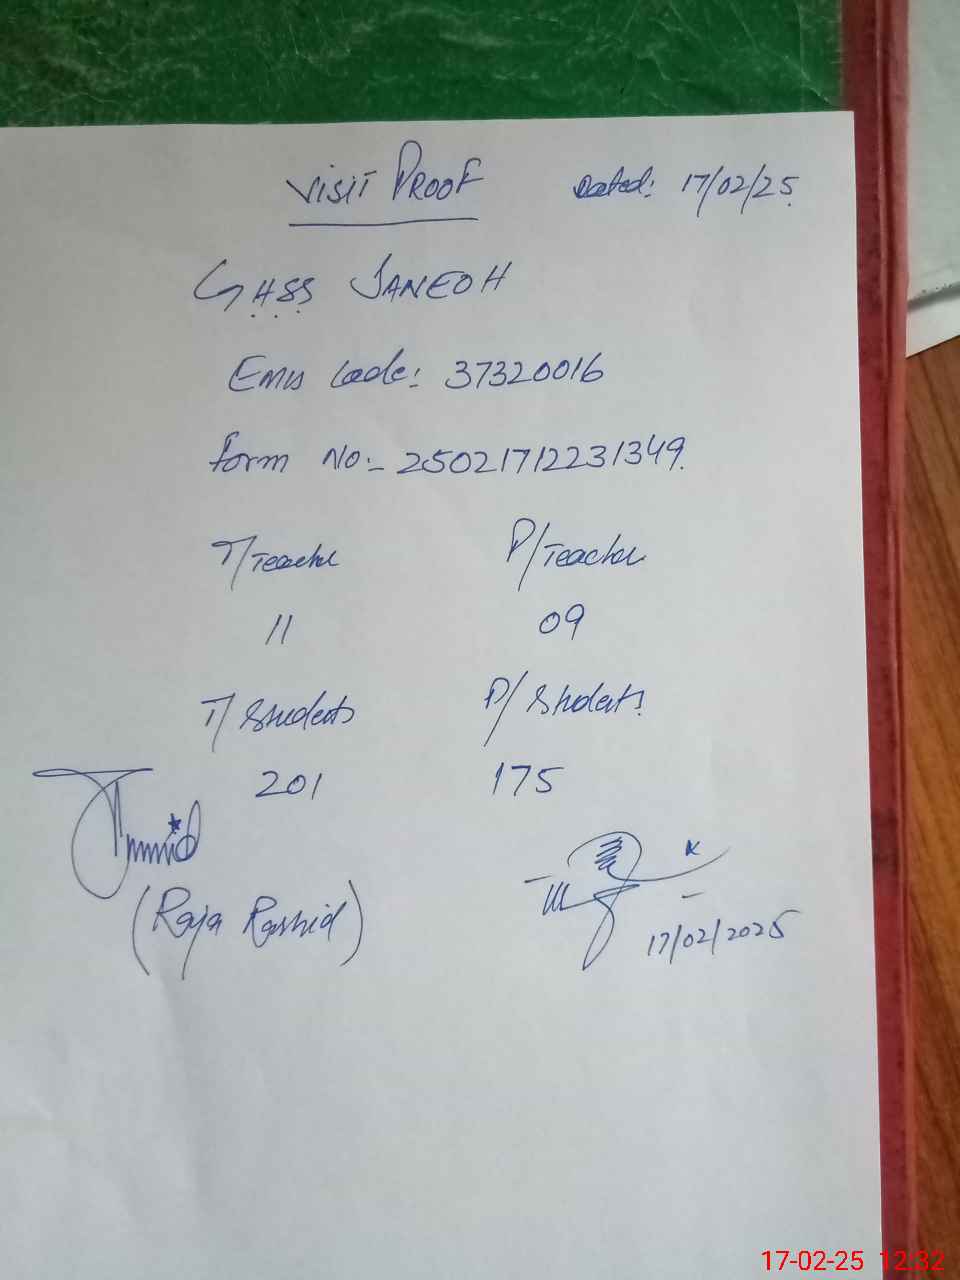 VISIT PROOF Dated: 17/02/25.
G.H.S.S JANEOH
Emis Code: 37320016
Form No:- 25021712231349.
T/Teacher P/Teacher
11 09
T/Students P/Students.
201 175
(Raja Rashid)
17/02/2025
17-02-25 12:32